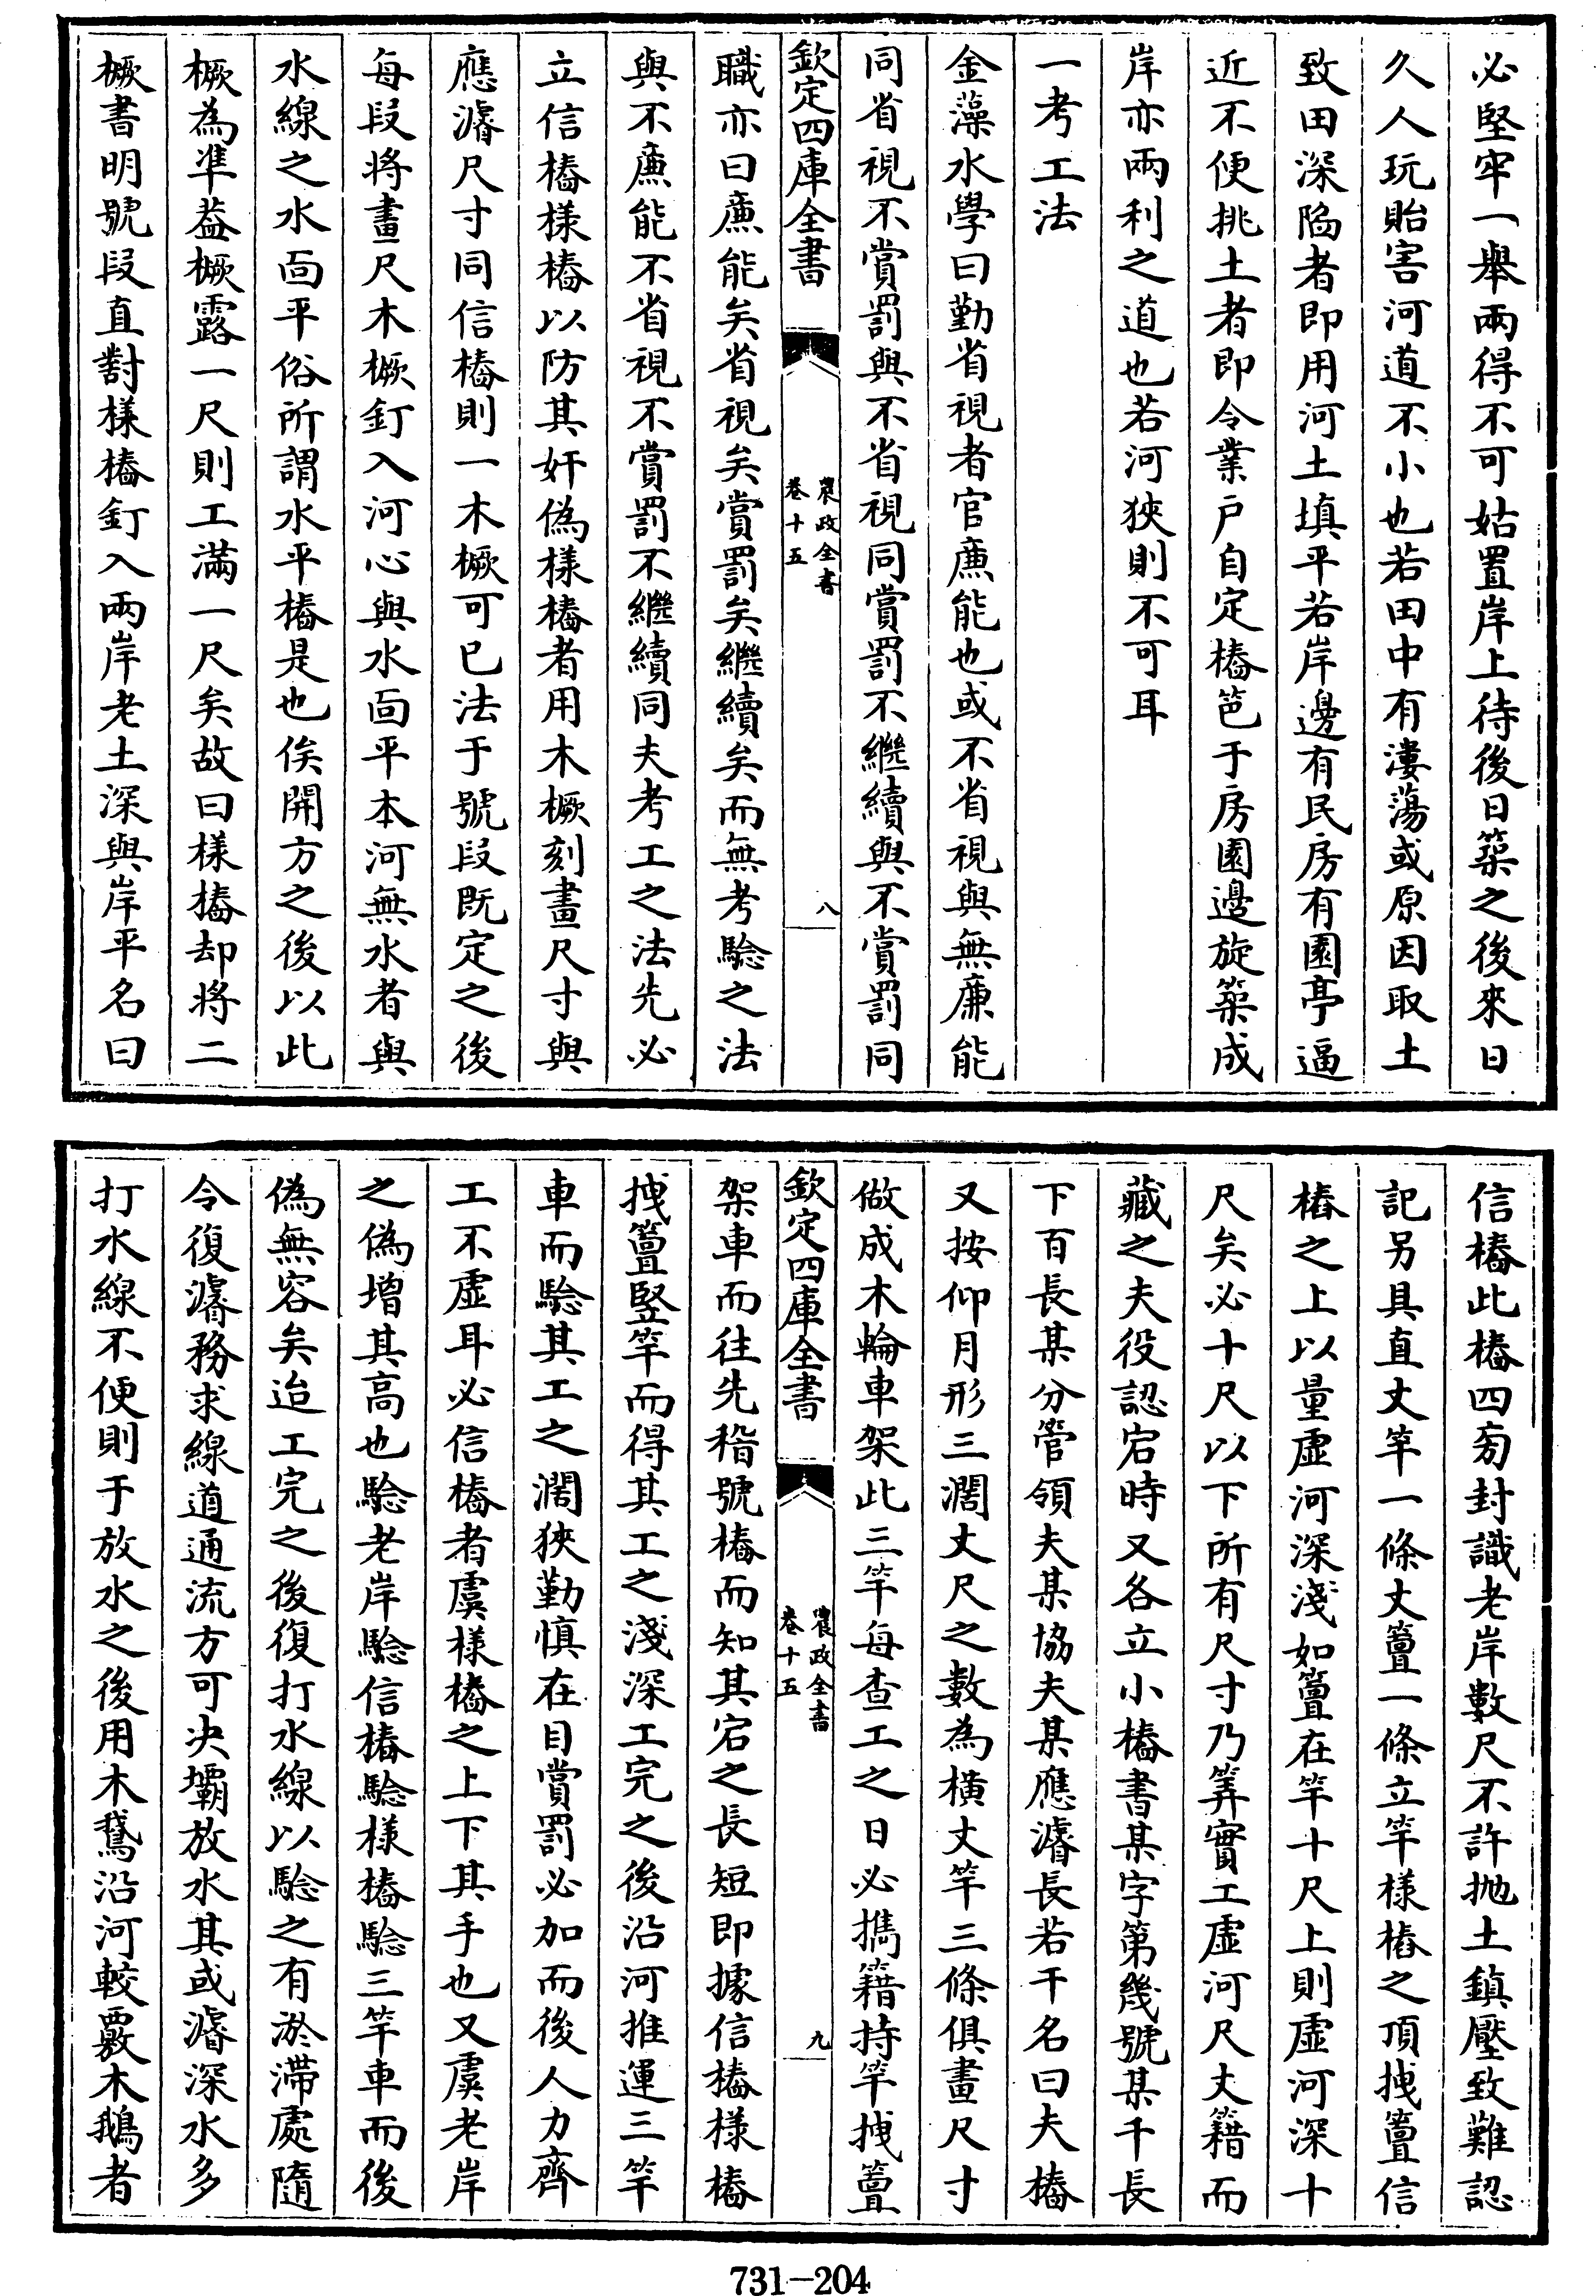 必堅牢一舉兩得不可姑置岸上待後日築之後來日
久人玩貽害河道不小也若田中有漊蕩或原因取土
致田深陷者即用河土填平若岸邊有民房有園亭逼
近不便挑土者即令業戶自定樁笆于房園邊旋築成
岸亦兩利之道也若河狹則不可耳
一考工法
金藻水學曰勤省視者官亷能也或不省視與無亷能
同省視不賞罰與不省視同賞罰不繼續與不賞罰同
欽定四庫全書
農政全書
卷十五
八
職亦曰亷能矣省視矣賞罰矣繼續矣而無考驗之法
與不亷能不省視不賞罰不繼續同夫考工之法先必
立信樁樣樁以防其奸偽樣樁者用木橛刻畫尺寸與
應濬尺寸同信樁則一木橛可已法于號段既定之後
每段將畫尺木橛釘入河心與水面平本河無水者與
水線之水面平俗所謂水平樁是也俟開方之後以此
橛為準葢橛露一尺則工滿一尺矣故曰樣樁却將二
橛書明號段直對樣樁釘入兩岸老土深與岸平名曰
信樁此樁四旁封識老岸數尺不許抛土鎮壓致難認
記另具直丈竿一條丈簹一條立竿樣樁之頂拽簹信
樁之上以量虛河深淺如簹在竿十尺上則虛河深十
尺矣必十尺以下所有尺寸乃筭實工虛河尺丈籍而
藏之夫役認宕時又各立小樁書某字第幾號某千長
下百長某分管領夫某協夫某應濬長若干名曰夫樁
又按仰月形三濶丈尺之數為橫丈竿三條俱畫尺寸
做成木輪車架此三竿每查工之日必擕籍持竿拽簹
欽定四庫全書
農政全書
卷十五
九
架車而往先稽號樁而知其宕之長短即據信樁樣樁
拽簹竪竿而得其工之淺深工完之後沿河推運三竿
車而驗其工之濶狹勤慎在目賞罰必加而後人力齊
工不虛耳必信樁者虞樣樁之上下其手也又虞老岸
之偽增其高也驗老岸驗信樁驗樣樁驗三竿車而後
偽無容矣迨工完之後復打水線以驗之有淤滯處隨
令復濬務求線道通流方可決壩放水其或濬深水多
打水線不便則于放水之後用木鵞沿河較覈木鵝者
731-204